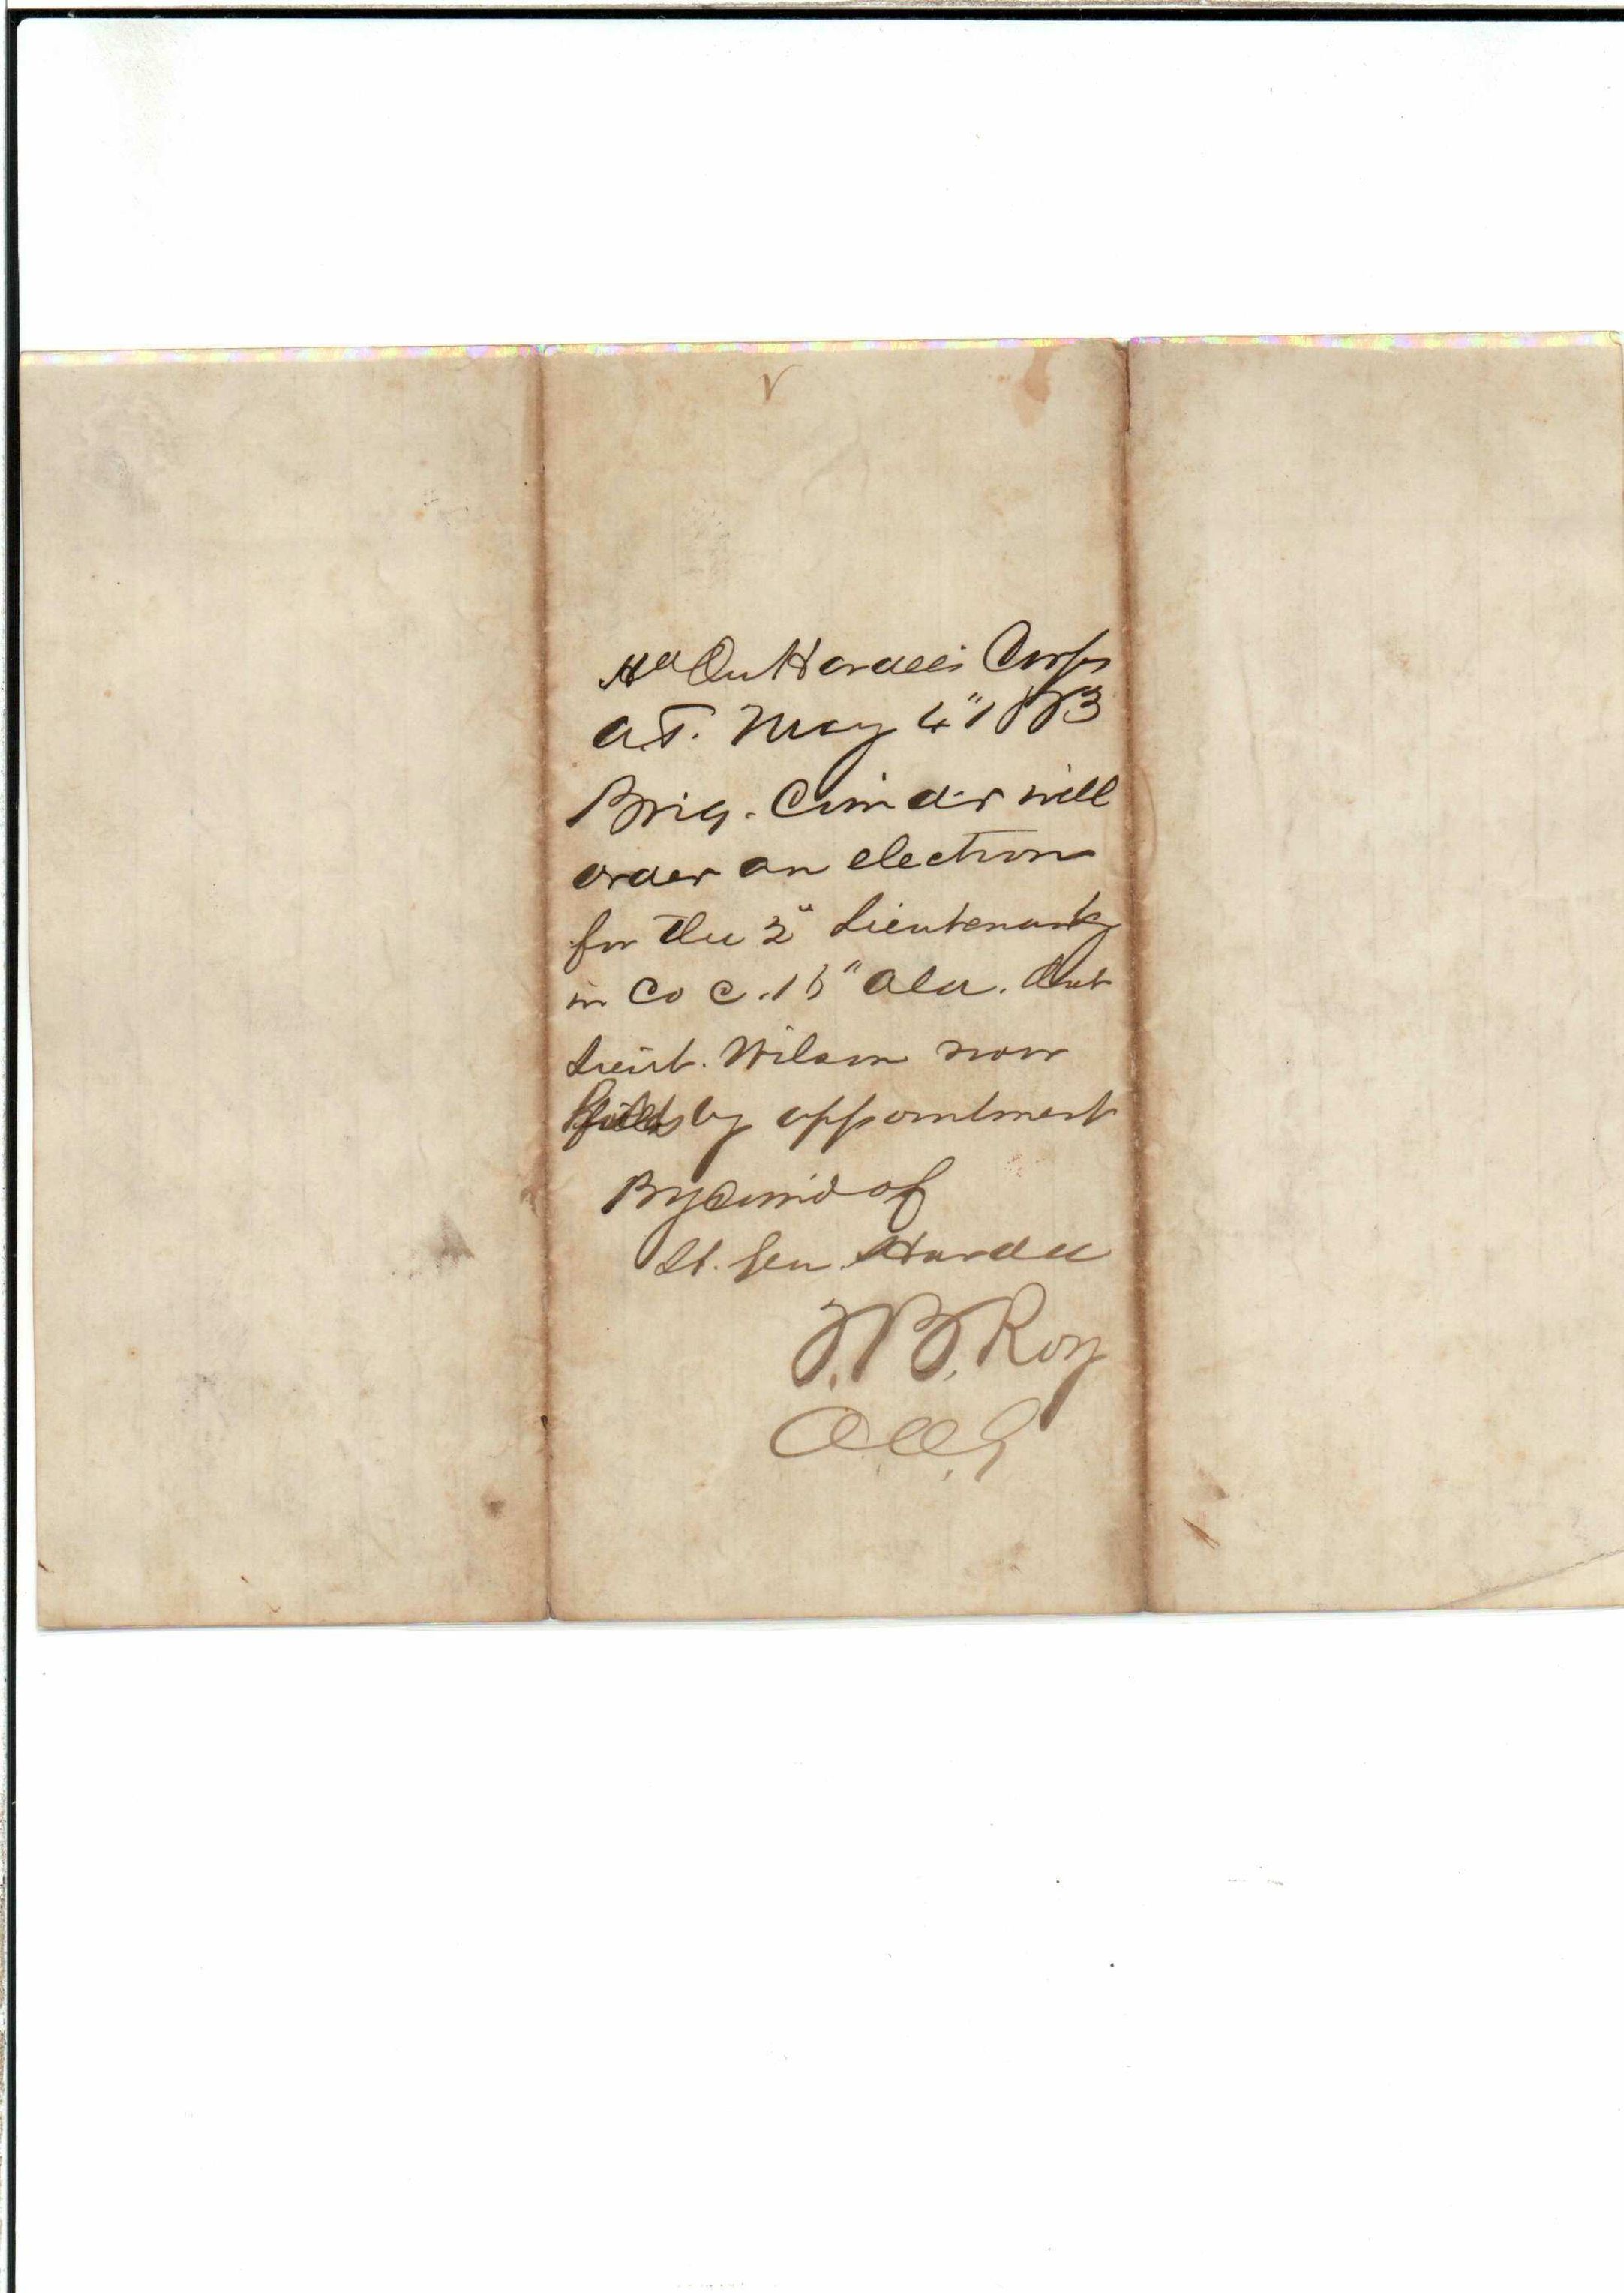 Hd Qu Hardee's Corps
A.T. May 4" 1863
Brig. Com'der will
order an election
for the 2d Lieutenancy
in Co C. 16" Ala. that
Lieut. Wilson now
fills by appointment
By Com'd of
Lt. Gen. Hardee
T.B. Roy
A.A.G